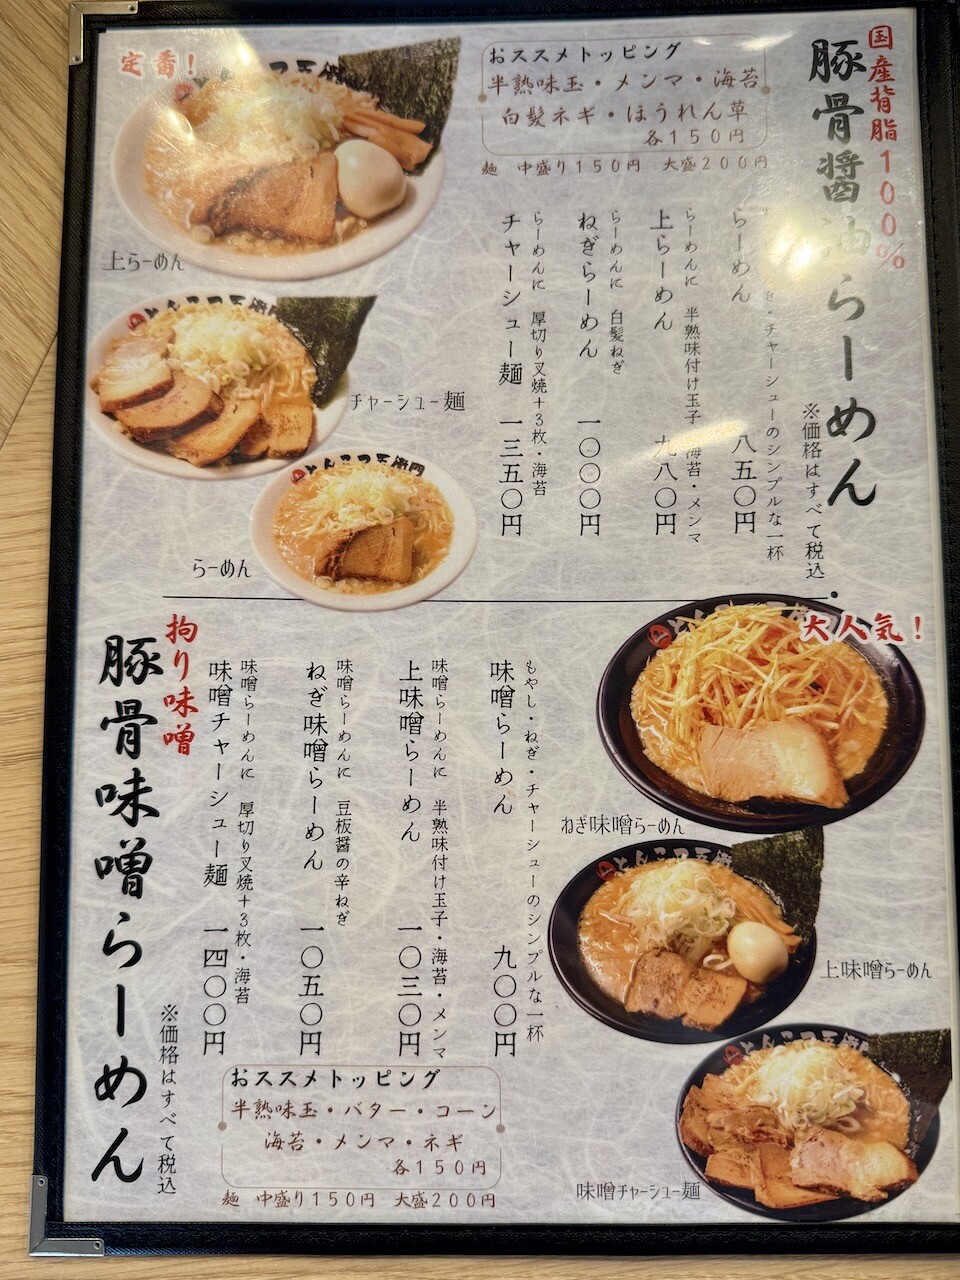 国産背脂100%
豚骨醤油らーめん
※価格はすべて税込
定番!
おススメトッピング
半熟味玉・メンマ・海苔
白髪ネギ・ほうれん草
各150円
麺 中盛り150円 大盛200円
らーめん 八五〇円
・チャーシューのシンプルな一杯
上らーめん 九八〇円
らーめんに 半熟味付け玉子・海苔・メンマ
ねぎらーめん 一〇〇〇円
らーめんに 白髪ねぎ
チャーシュー麺 一三五〇円
らーめんに 厚切り叉焼+3枚・海苔
上らーめん
チャーシュー麺
らーめん
拘り味噌
豚骨味噌らーめん
※価格はすべて税込
大人気!
もやし・ねぎ・チャーシューのシンプルな一杯
味噌らーめん 九〇〇円
味噌らーめんに 半熟味付け玉子・海苔・メンマ
上味噌らーめん 一〇三〇円
味噌らーめんに 豆板醤の辛ねぎ
ねぎ味噌らーめん 一〇五〇円
味噌らーめんに 厚切り叉焼+3枚・海苔
味噌チャーシュー麺 一四〇〇円
ねぎ味噌らーめん
上味噌らーめん
味噌チャーシュー麺
おススメトッピング
半熟味玉・バター・コーン
海苔・メンマ・ネギ
各150円
麺 中盛り150円 大盛200円